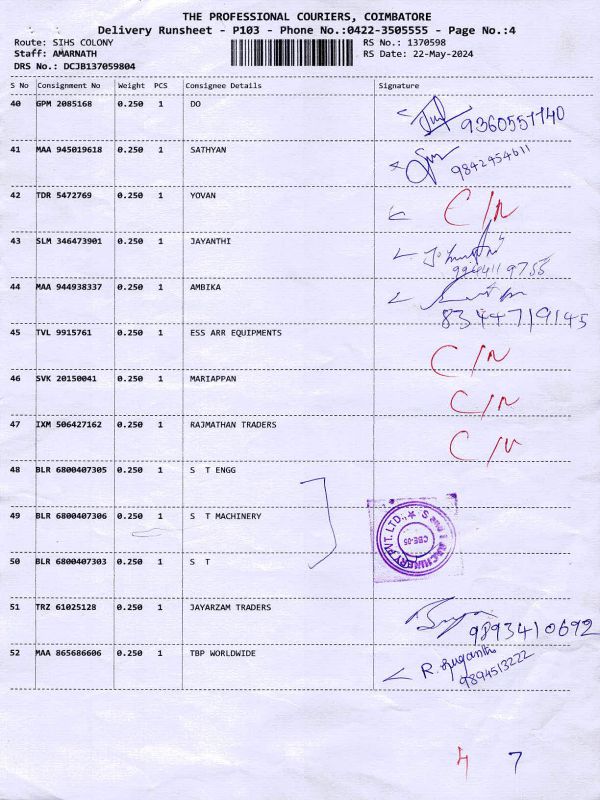 THE PROFESSIONAL COURIERS, COIMBATORE
Delivery Runsheet - P103 - Phone No.:0422-3505555 - Page No.:4
Route: SIHS COLONY RS No.: 1370598
Staff: AMARNATH RS Date: 22-May-2024
DRS No.: DCJB137059804
S No Consignment No Weight PCS Consignee Details Signature
40 GPM 2085168 0.250 1 DO 9360551140
41 MAA 945019618 0.250 1 SATHYAN 9842454611
42 TDR 5472769 0.250 1 YOVAN C/N
43 SLM 346473901 0.250 1 JAYANTHI
44 MAA 944938337 0.250 1 AMBIKA 83447 19145
45 TVL 9915761 0.250 1 ESS ARR EQUIPMENTS C/N
46 SVK 20150041 0.250 1 MARIAPPAN C/N
47 IXM 506427162 0.250 1 RAJMATHAN TRADERS C/N
48 BLR 6800407305 0.250 1 S T ENGG
49 BLR 6800407306 0.250 1 S T MACHINERY
50 BLR 6800407303 0.250 1 S T
MACHINERY PVT. LTD.,
CBE-05
51 TRZ 61025128 0.250 1 JAYARZAM TRADERS 9893410692
52 MAA 865686606 0.250 1 TBP WORLDWIDE R. Suganthi
9894513222
4 7